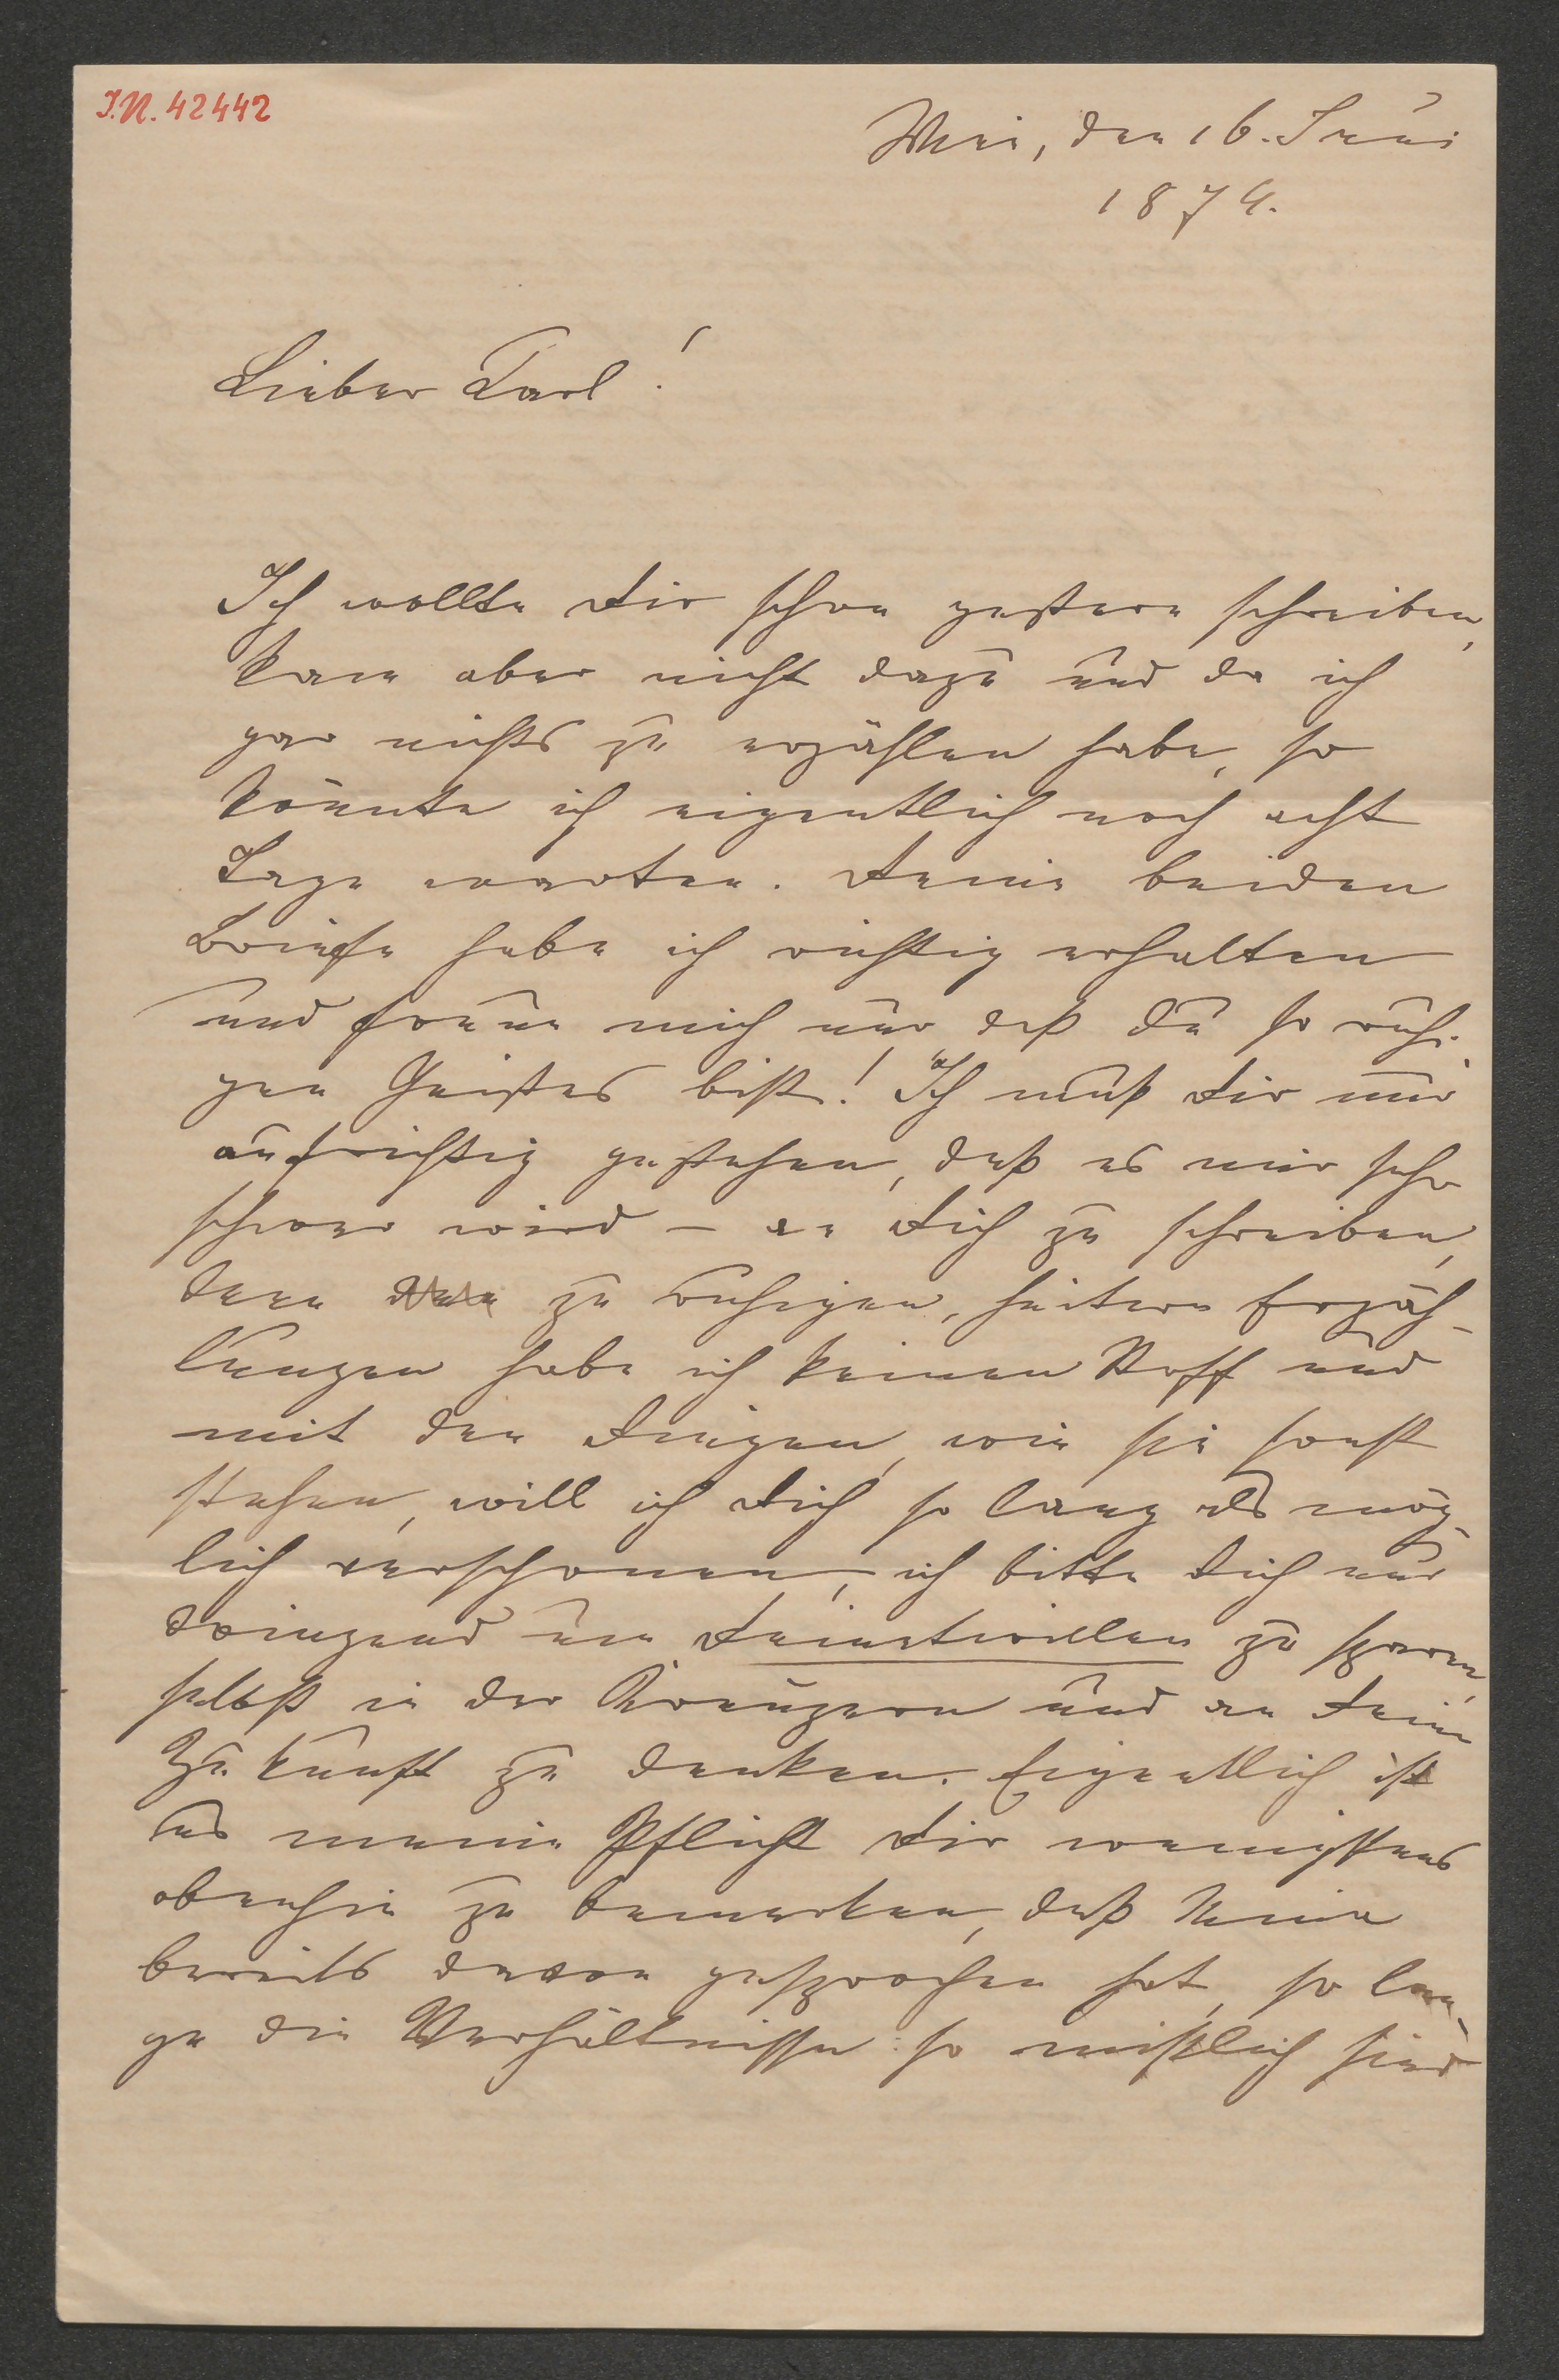 I.N. 42442
Wien, den 16. Juni
1874.
Lieber Carl!
Ich wollte Dir schon gestern schreiben,
kam aber nicht dazu und da ich
gar nichts zu erzählen habe, so
könnte ich eigentlich noch acht
Tage warten. Deine beiden
Briefe habe ich richtig erhalten
und freue mich nur daß du so ruhi-
gen Geistes bist! Ich muß Dir nur
aufrichtig gestehen, daß es mir sehr
schwer wird – an Dich zu schreiben,
denn zu ruhigen, heitern Erzäh-
lungen habe ich keinen Stoff und
mit den Dingen, wie sie sonst
stehen, will ich Dich so lang als mög-
lich verschonen, ich bitte Dich nur
dringend um Deinetwillen zu sparen,
selbst in der Kreuzern und an Deine
Zukunft zu denken. Eigentlich ist
es meine Pflicht Dir wenigstens
obenhin zu bemerken, daß
bereits davon gesprochen hat, so lan-
ge die Verhältnisse so mißlich sind